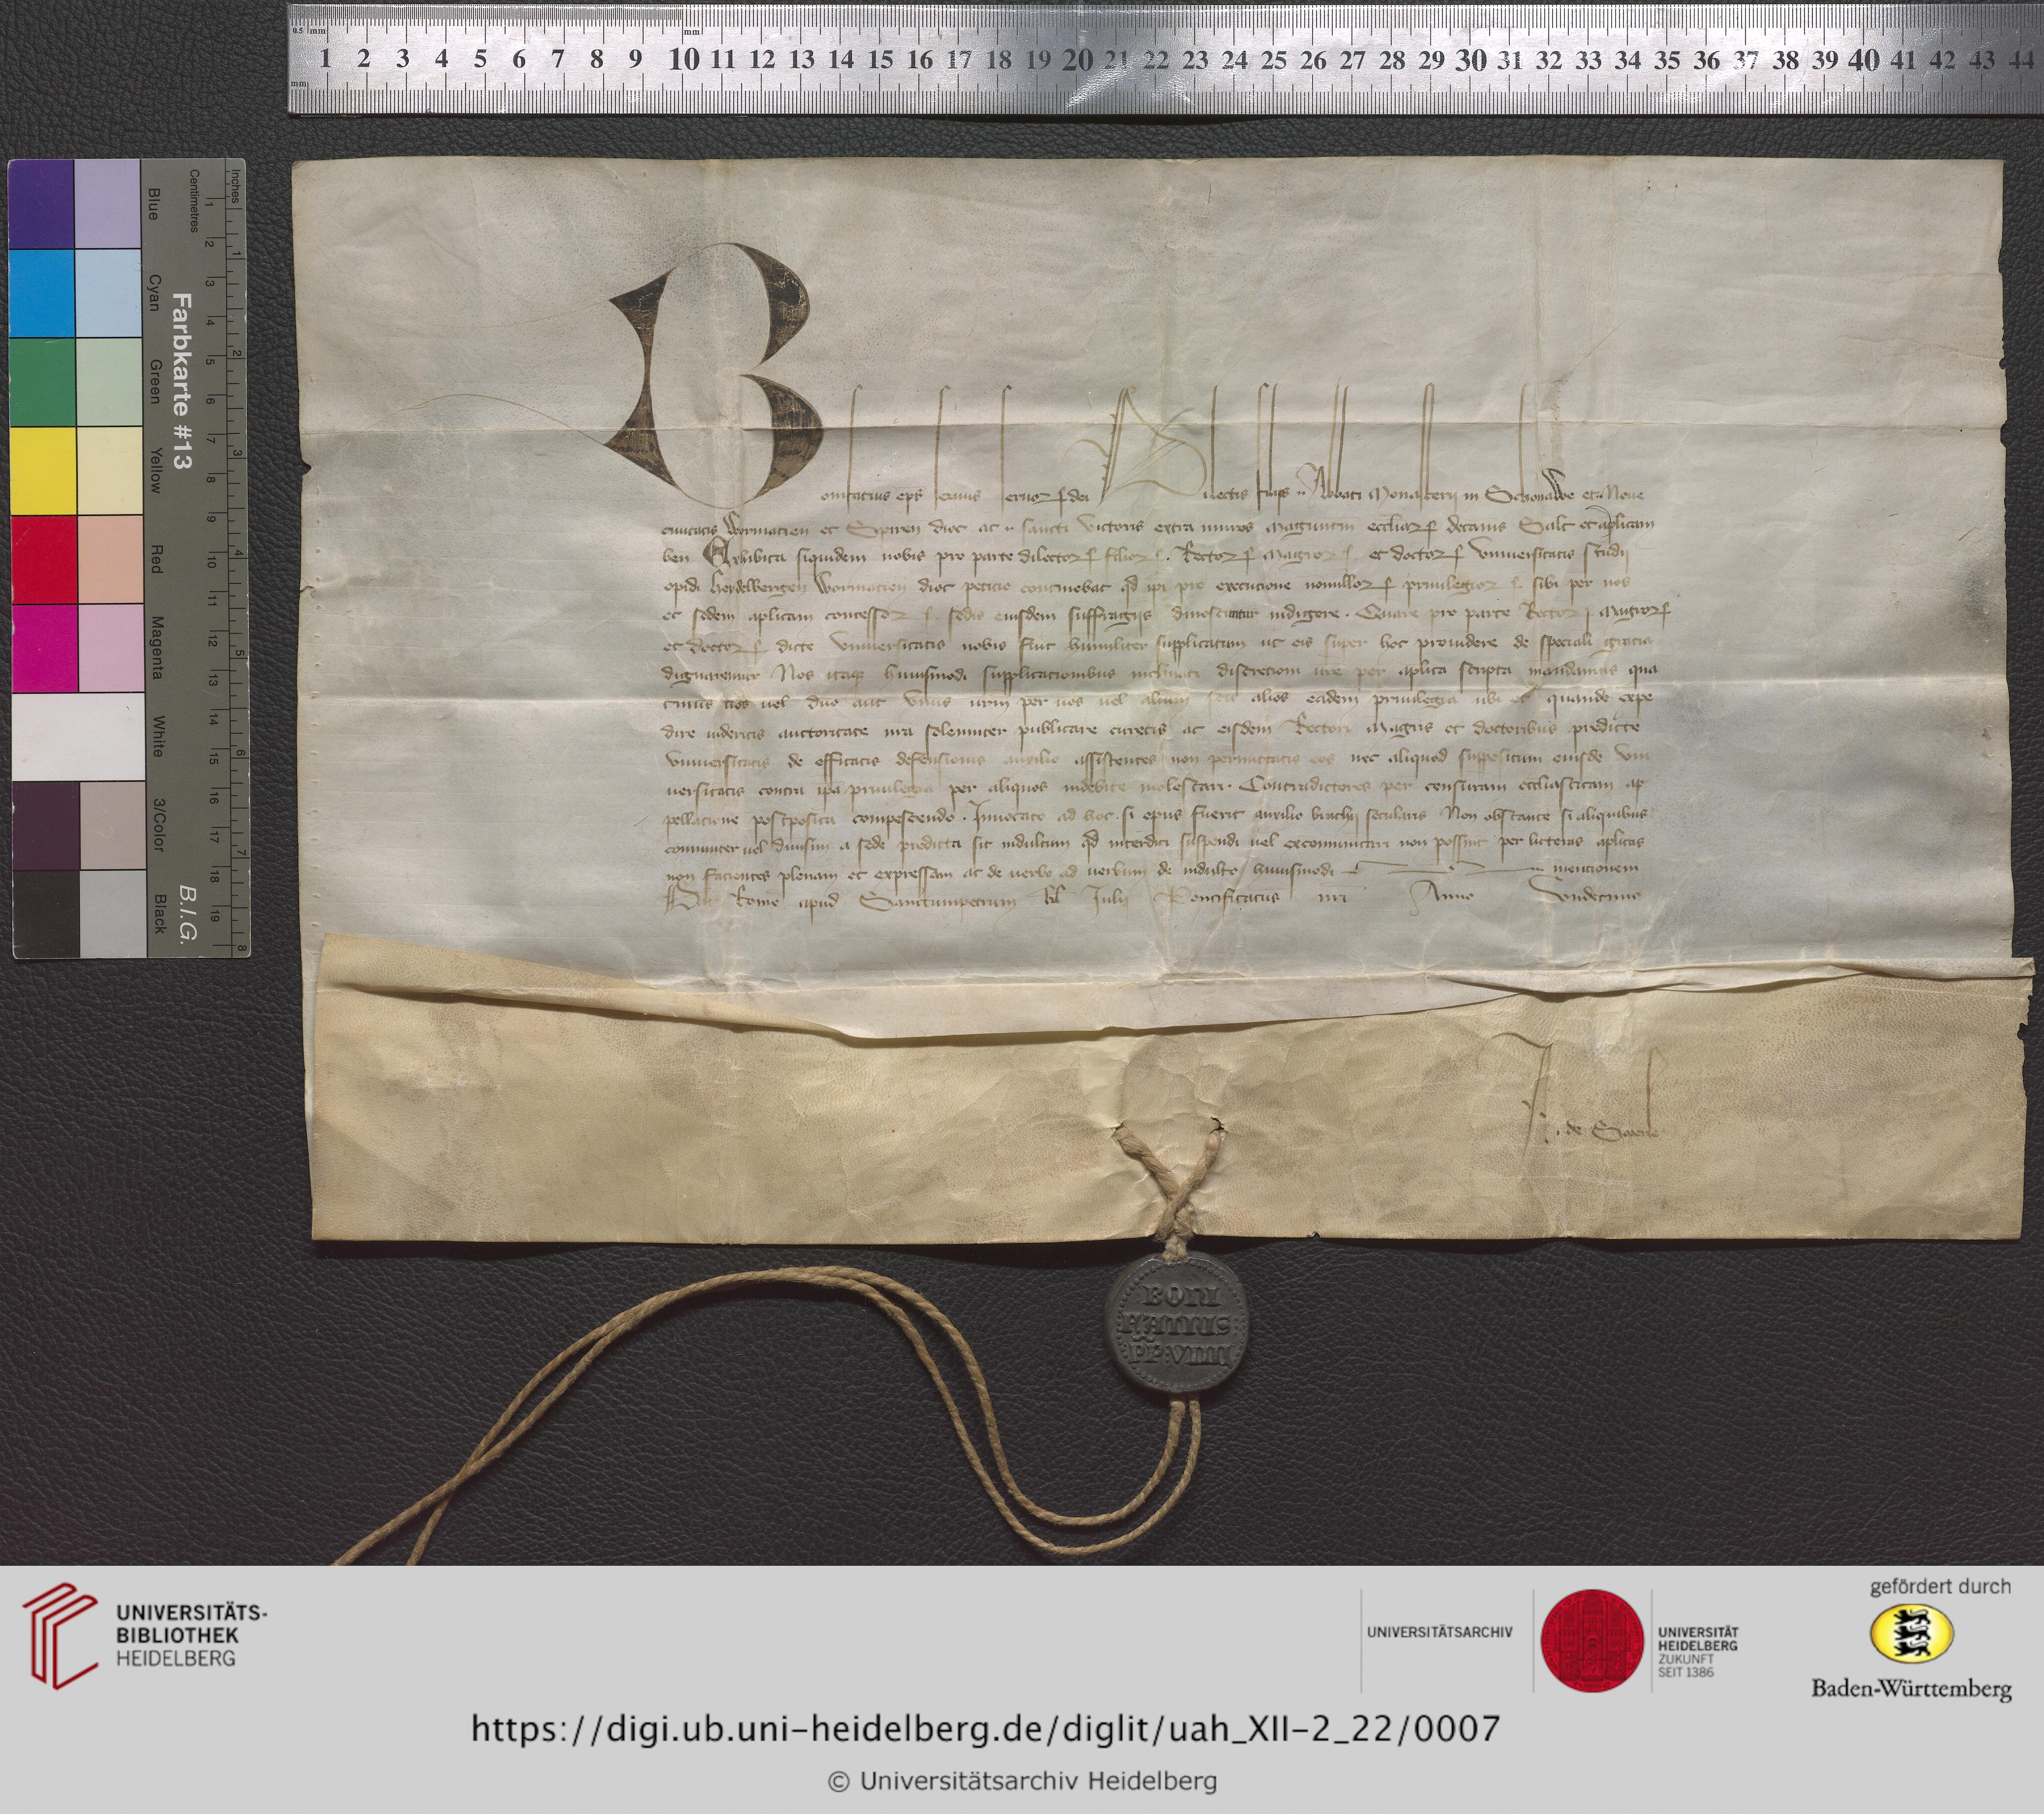 0.5 mm mm
mm
1 2 3 4 5 6 7 8 9 10 11 12 13 14 15 16 17 18 19 20 21 22 23 24 25 26 27 28 29 30 31 32 33 34 35 36 37 38 39 40 41 42 43 44
Inches
Centimetres
1 2 3 4 5 6 7 8 9 10 11 12 13 14 15 16 17 18 19
1 2 3 4 5 6 7 8
Farbkarte #13
B.I.G.
Blue
Cyan
Green
Yellow
Red
Magenta
White
3/Color
Black
Bonifatius eps seruus seruor dei Dilectis filijs Abbati Monasterij in Schonawe et Noue
ciuitatis Wormatien et Spiren dioc ac sancti Victoris extra muros Maguntin eccliar decanis Salt et aplicam
ben Exhibita siquidem nobis pro parte dilector filior Rector Magror et doctor Vniuersitatis studij
opidi Heydelbergen Wormatien dioc peticio continebat qd ipi pro executione nonnullor priuilegior sibi per nos
et sedem aplicam concessor sedis eiusdem suffragijs dinoscuntur indigere. Quare pro parte Rector Magror
et doctor dicte Vniuersitatis nobis fuit humiliter supplicatum ut eis super hoc prouidere de speciali gratia
dignaremur Nos itaq huiusmodi supplicationibus inclinati discretioni ure per aplica scripta mandamus qua
tinus uos uel duo aut unus urm per uos uel alium seu alios eadem priuilegia ubi et quando expe
dire uideritis auctoritate nra solenniter publicare curetis ac eisdem Rectori Magris et doctoribus predicte
Vniuersitatis de efficacis defensionis auxilio assistentes non permittatis eos nec aliquod suppositum eiusde Vni
uersitatis contra ipa priuilegia per aliquos indebite molestari. Contradictores per censuram eccliasticam ap
pellatione postposita compescendo. Inuocato ad hoc si opus fuerit auxilio brachij secularis Non obstante si aliquibus
comuniter uel diuisim a sede predicta sit indultum qd interdici suspendi uel excomunicari non possint per litteras aplicas
non facientes plenam et expressam ac de uerbo ad uerbum de indulto huiusmodi mentionem
Dat Rome apud Sanctumpetrum kl Julij Pontificatus nri Anno Vndecimo
de
BONI
FATIUS
PP: VIIII
UNIVERSITÄTS-
BIBLIOTHEK
HEIDELBERG
UNIVERSITÄTSARCHIV
UNIVERSITÄT
HEIDELBERG
ZUKUNFT
SEIT 1386
gefördert durch
Baden-Württemberg
https://digi.ub.uni-heidelberg.de/diglit/uah_XII-2_22/0007
© Universitätsarchiv Heidelberg